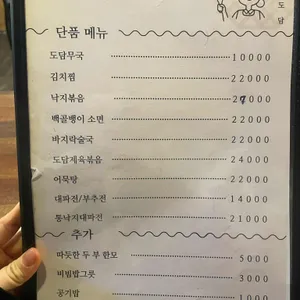 도담
단품 메뉴
도담무국 10000
김치찜 22000
낙지볶음 27000
백골뱅이 소면 22000
바지락술국 22000
도담제육볶음 24000
어묵탕 22000
대파전/부추전 14000
통낙지대파전 21000
추가
따듯한 두부 한모 5000
비빔밥그릇 3000
공기밥 1000